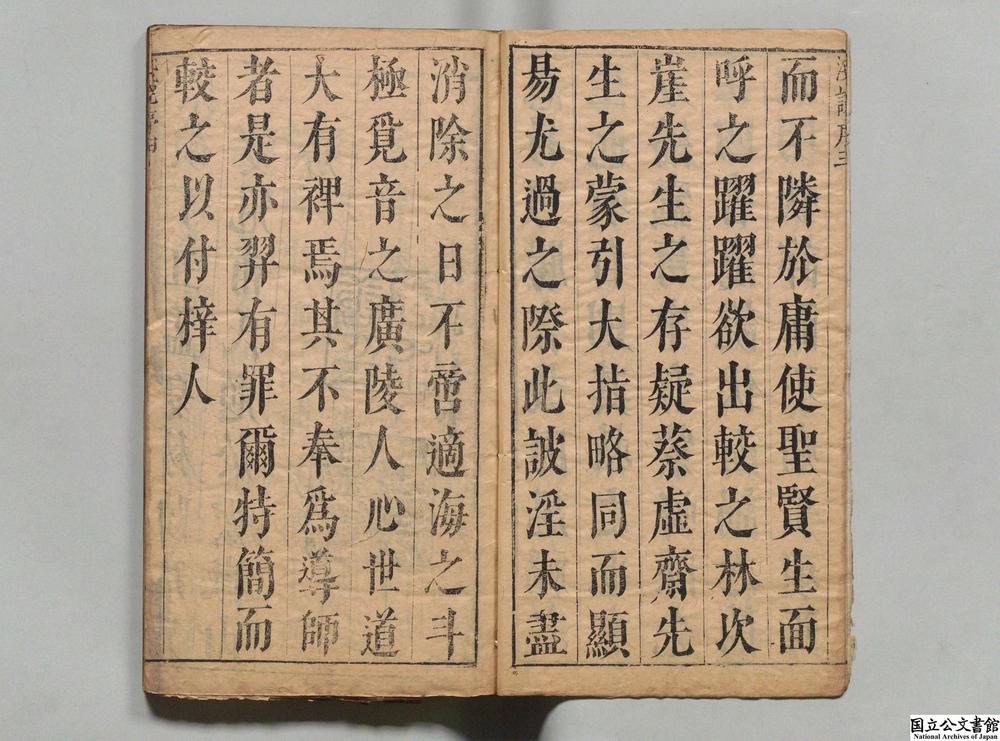 而不隣於庸使聖賢生面
呼之躍躍欲出較之林次
崖先生之存疑蔡虛齋先
生之蒙引大指略同而顯
易尤過之際此詖淫未盡
消除之日不啻適海之斗
極覓音之廣陵人心世道
大有裨焉其不奉爲導師
者是亦羿有罪爾特簡而
較之以付梓人
国立公文書館
National Archives of Japan